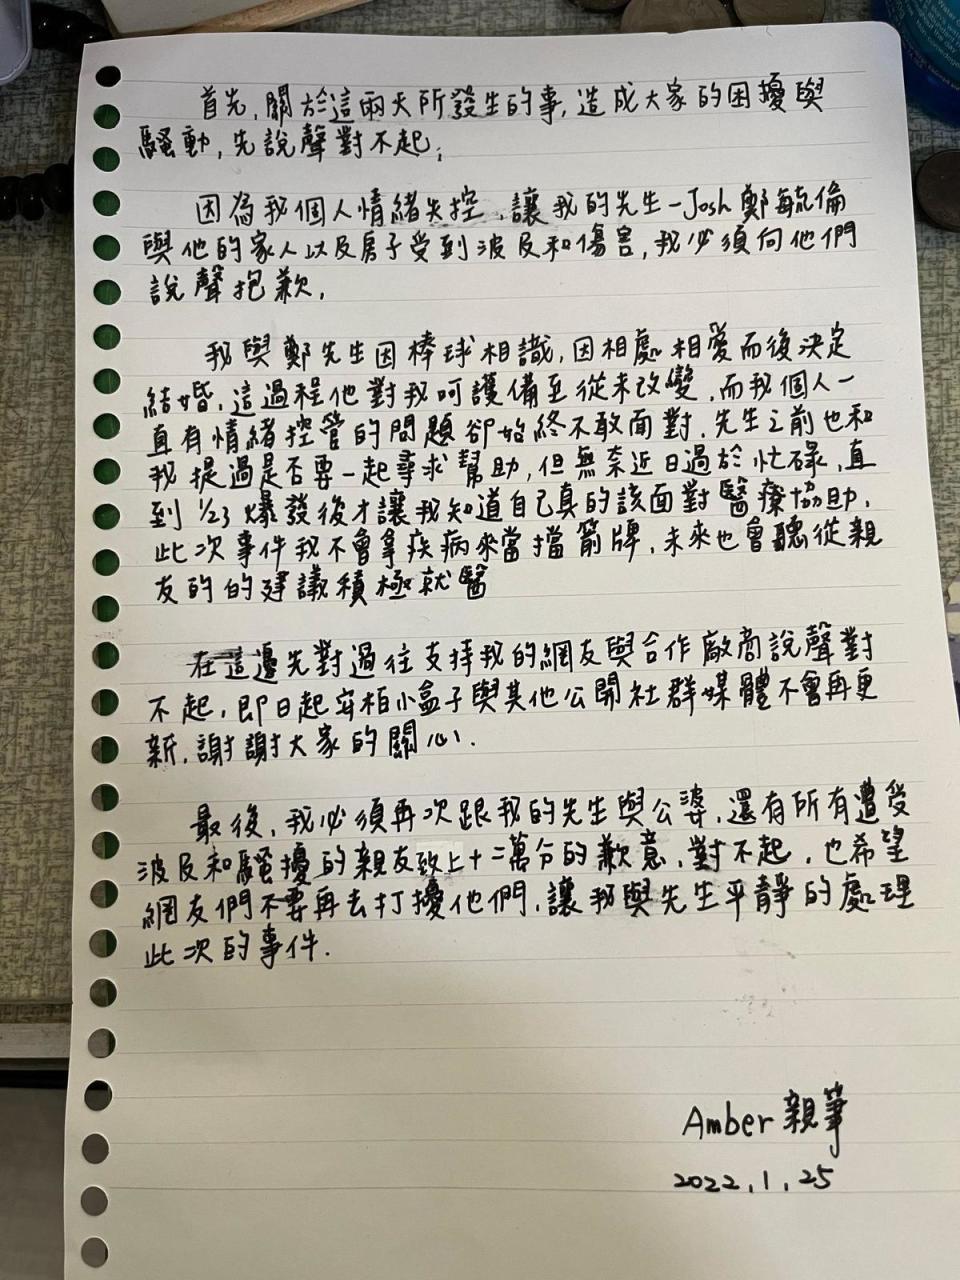 首先,關於這兩天所發生的事,造成大家的困擾與
騷動,先說聲對不起,
因為我個人情緒失控,讓我的先生-Josh鄭毓倫
與他的家人以及房子受到波及和傷害,我必須向他們
說聲抱歉,
我與鄭先生因棒球相識,因相處相愛而後決定
結婚,這過程他對我呵護備至從未改變,而我個人一
直有情緒控管的問題卻始終不敢面對,先生之前也和
我提過是否要一起尋求幫助,但無奈近日過於忙碌,直
到1/23爆發後才讓我知道自己真的該面對醫療協助,
此次事件我不會拿疾病來當擋箭牌,未來也會聽從親
友的的建議積極就醫
在這邊先對過往支持我的網友與合作廠商說聲對
不起,即日起安柏小盒子與其他公開社群媒體不會再更
新,謝謝大家的關心.
最後,我必須再次跟我的先生與公婆,還有所有遭受
波及和騷擾的親友致上十二萬分的歉意,對不起,也希望
網友們不要再去打擾他們,讓我與先生平靜的處理
此次的事件.
Amber親筆
2022.1.25